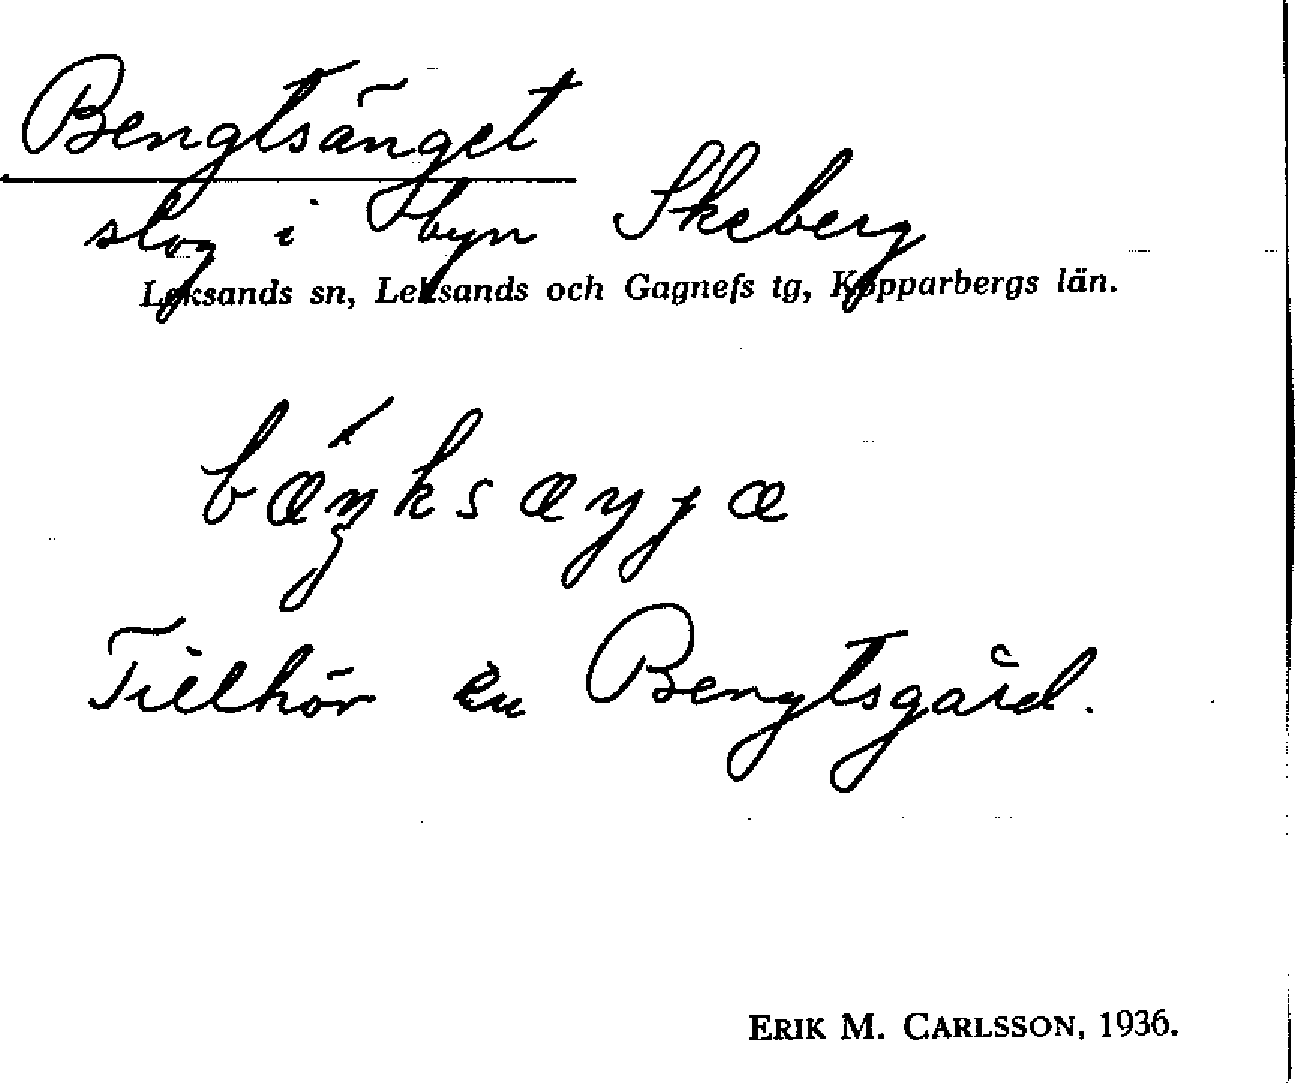 Bengtsänget
slog i byn Skeberg
Leksands sn, Leksands och Gagnefs tg, Kopparbergs län.
bæŋ́ksæŋɟæ
Tillhör en Bengtsgård.
ERIK M. CARLSSON, 1936.